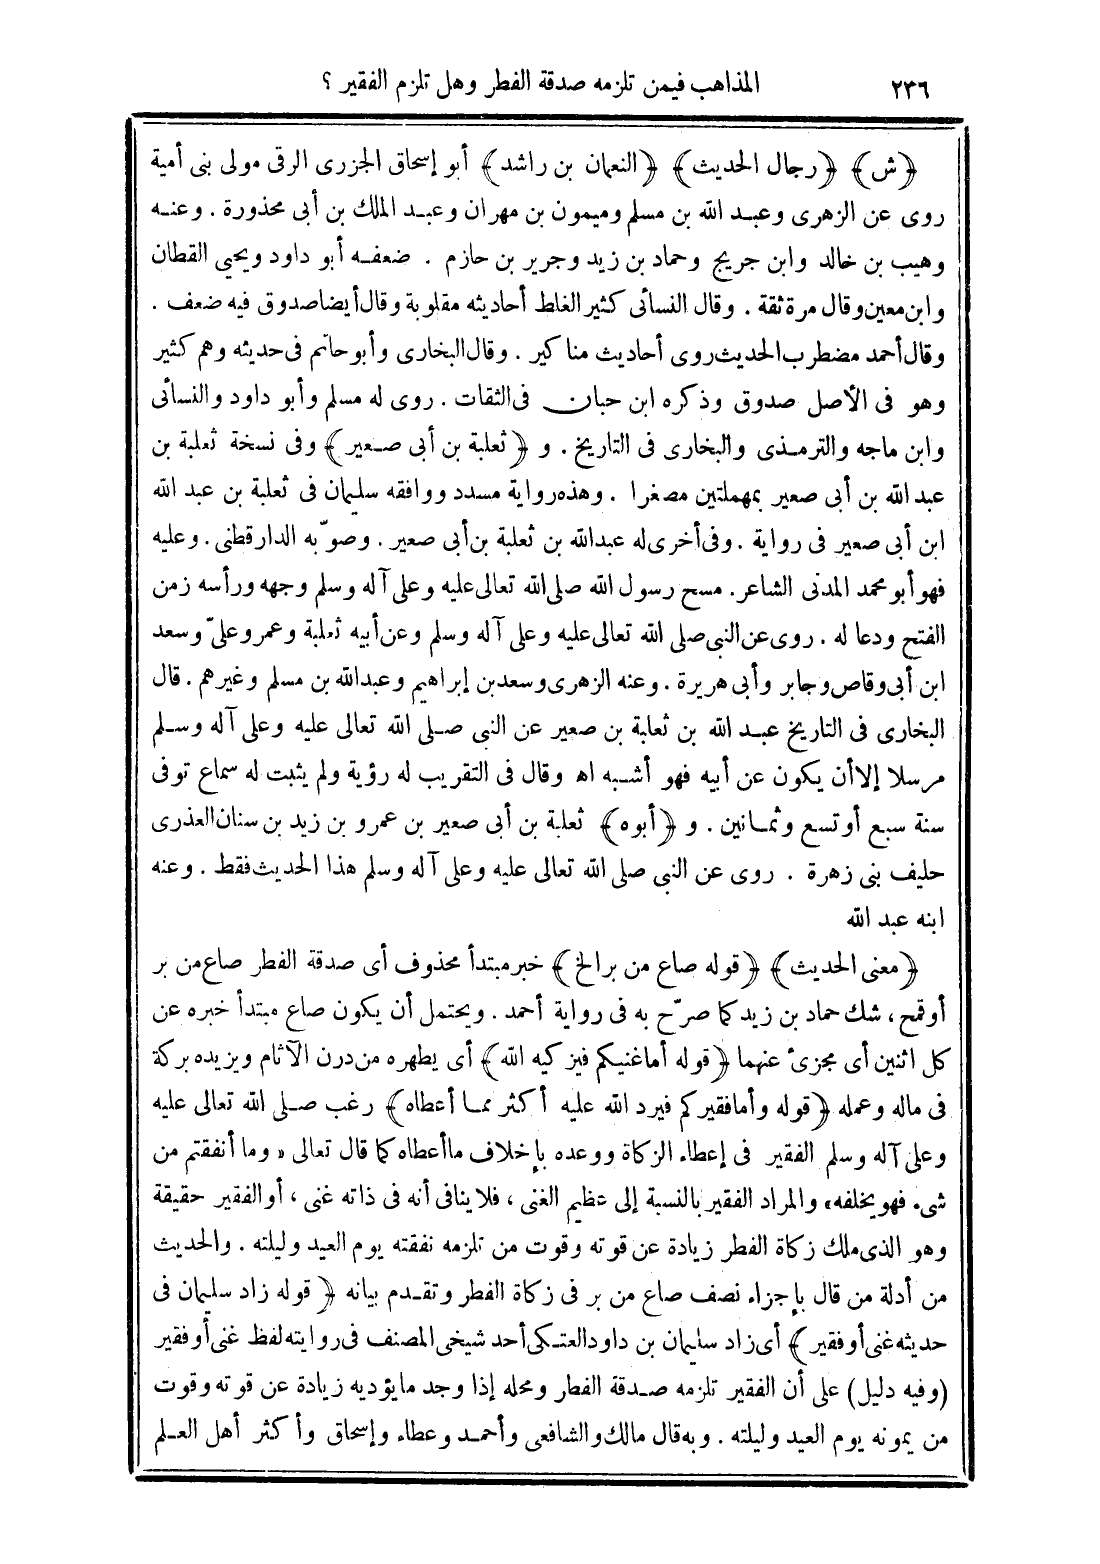 ٢٣٦
المذاهب فيمن تلزمه صدقة الفطر وهل تلزم الفقير ؟
﴿ش﴾ ﴿رجال الحديث﴾ ﴿النعمان بن راشد﴾ أبو إسحاق الجزرى الرقى مولى بنى أمية
روى عن الزهرى وعبد الله بن مسلم وميمون بن مهران وعبد الملك بن أبى محذورة . وعنه
وهيب بن خالد وابن جريج وحماد بن زيد وجرير بن حازم . ضعفه أبو داود ويحيي القطان
وابن معين وقال مرة ثقة . وقال النسائى كثير الغلط أحاديثه مقلوبة وقال أيضا صدوق فيه ضعف .
وقال أحمد مضطرب الحديث روى أحاديث مناكير . وقال البخارى وأبو حاتم فى حديثه وهم كثير
وهو فى الأصل صدوق وذكره ابن حبان فى الثقات . روى له مسلم وأبو داود والنسائى
وابن ماجه والترمذى والبخارى فى التاريخ . و ﴿ثعلبة بن أبى صعير﴾ وفى نسخة ثعلبة بن
عبد الله بن أبى صعير بمهملتين مصغرا . وهذه رواية مسدد ووافقه سليمان فى ثعلبة بن عبد الله
ابن أبى صعير فى رواية . وفى أخرى له عبد الله بن ثعلبة بن أبى صعير . وصوّبه الدارقطنى . وعليه
فهو أبو محمد المدنى الشاعر . مسح رسول الله صلى الله تعالى عليه وعلى آله وسلم وجهه ورأسه زمن
الفتح ودعا له . روى عن النبى صلى الله تعالى عليه وعلى آله وسلم وعن أبيه ثعلبة وعمر وعلىّ وسعد
ابن أبى وقاص وجابر وأبى هريرة . وعنه الزهرى وسعد بن إبراهيم وعبد الله بن مسلم وغيرهم . قال
البخارى فى التاريخ عبد الله بن ثعلبة بن صعير عن النبى صلى الله تعالى عليه وعلى آله وسلم
مرسلا إلا أن يكون عن أبيه فهو أشبه اه وقال فى التقريب له رؤية ولم يثبت له سماع توفى
سنة سبع أو تسع وثمانين . و ﴿أبوه﴾ ثعلبة بن أبى صعير بن عمرو بن زيد بن سنان العذرى
حليف بنى زهرة . روى عن النبى صلى الله تعالى عليه وعلى آله وسلم هذا الحديث فقط . وعنه
ابنه عبد الله
﴿معنى الحديث﴾ ﴿قوله صاع من بر الخ﴾ خبر مبتدأ محذوف أى صدقة الفطر صاع من بر
أو قمح ، شك حماد بن زيد كما صرّح به فى رواية أحمد . ويحتمل أن يكون صاع مبتدأ خبره عن
كل اثنين أى مجزئ عنهما ﴿قوله أما غنيكم فيزكيه الله﴾ أى يطهره من درن الآثام ويزيده بركة
فى ماله وعمله ﴿قوله وأما فقيركم فيرد الله عليه أكثر مما أعطاه﴾ رغب صلى الله تعالى عليه
وعلى آله وسلم الفقير فى إعطاء الزكاة ووعده بإخلاف ما أعطاه كما قال تعالى « وما أنفقتم من
شىء فهو يخلفه» والمراد الفقير بالنسبة إلى عظيم الغنى ، فلا ينافى أنه فى ذاته غنى ، أو الفقير حقيقة
وهو الذى ملك زكاة الفطر زيادة عن قوته وقوت من تلزمه نفقته يوم العيد وليلته . والحديث
من أدلة من قال بإجزاء نصف صاع من بر فى زكاة الفطر وتقدم بيانه ﴿قوله زاد سليمان فى
حديثه غنى أو فقير﴾ أى زاد سليمان بن داود العتكى أحد شيخى المصنف فى روايته لفظ غنى أو فقير
(وفيه دليل) على أن الفقير تلزمه صدقة الفطر ومحله إذا وجد ما يؤديه زيادة عن قوته وقوت
من يمونه يوم العيد وليلته . وبه قال مالك والشافعى وأحمد وعطاء وإسحاق وأكثر أهل العلم